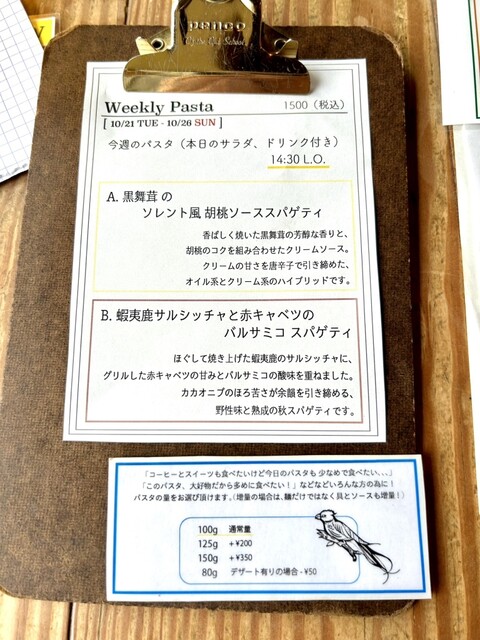 penco
Weekly Pasta 1500（税込）
[ 10/21 TUE - 10/26 SUN ]
今週のパスタ（本日のサラダ、ドリンク付き）
14:30 L.O.
A. 黒舞茸 の
ソレント風 胡桃ソーススパゲティ
香ばしく焼いた黒舞茸の芳醇な香りと、
胡桃のコクを組み合わせたクリームソース。
クリームの甘さを唐辛子で引き締めた、
オイル系とクリーム系のハイブリッドです。
B. 蝦夷鹿サルシッチャと赤キャベツの
バルサミコ スパゲティ
ほぐして焼き上げた蝦夷鹿のサルシッチャに、
グリルした赤キャベツの甘みとバルサミコの酸味を重ねました。
カカオニブのほろ苦さが余韻を引き締める、
野性味と熟成の秋スパゲティです。
「コーヒーとスイーツも食べたいけど今日のパスタも 少なめで食べたい、、、」
「このパスタ、大好物だから多めに食べたい！」などなどいろんな方の為に！
パスタの量をお選び頂けます。（増量の場合は、麺だけではなく具とソースも増量！）
100g 通常量
125g +¥200
150g +¥350
80g デザート有りの場合 - ¥50